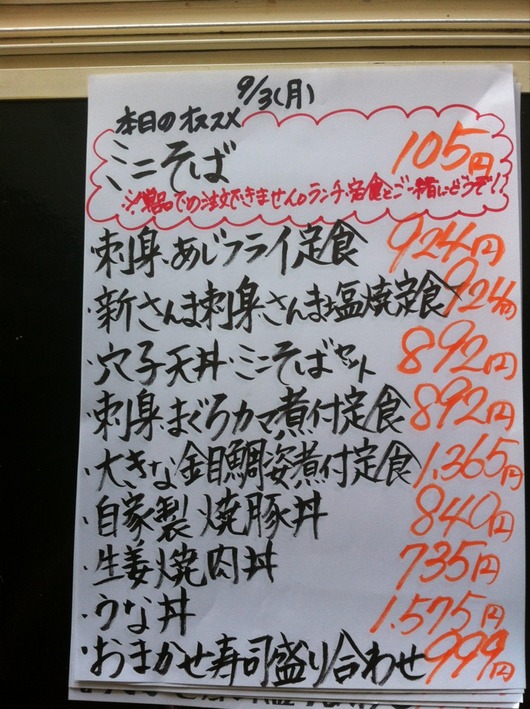 9/3(月)
本日のオススメ
ミニそば 105円
※単品での注文できません。ランチ・定食とご一緒にどうぞ!!
・刺身、あじフライ定食 924円
・新さんま刺身、さんま塩焼定食 924円
・穴子天丼・ミニそばセット 892円
・刺身、まぐろカマ煮付定食 892円
・大きな金目鯛姿煮付定食 1,365円
・自家製焼豚丼 840円
・生姜焼肉丼 735円
・うな丼 1,575円
・おまかせ寿司盛り合わせ 999円